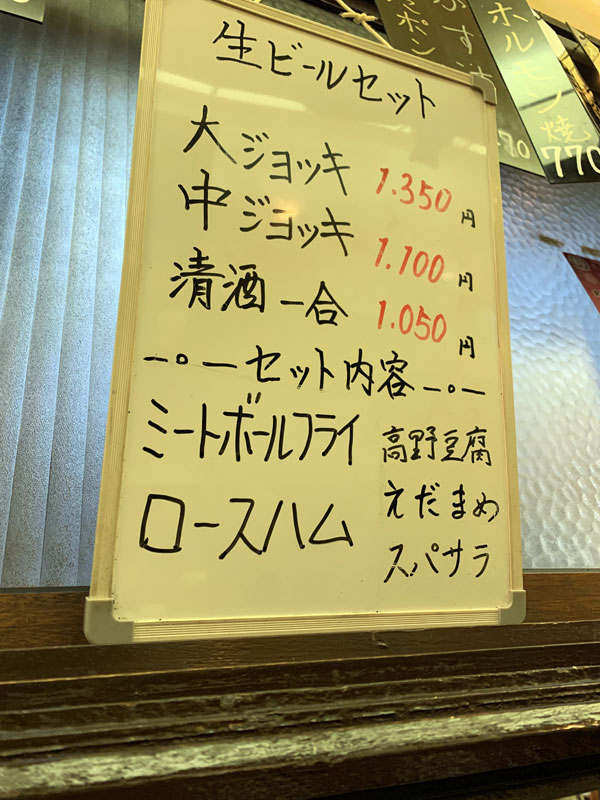 生ビールセット
大ジョッキ 1.350円
中ジョッキ 1.100円
清酒一合 1.050円
ー。ーセット内容ー。ー
ミートボールフライ 高野豆腐
ロースハム えだまめ
スパサラ
ホルモン焼
770